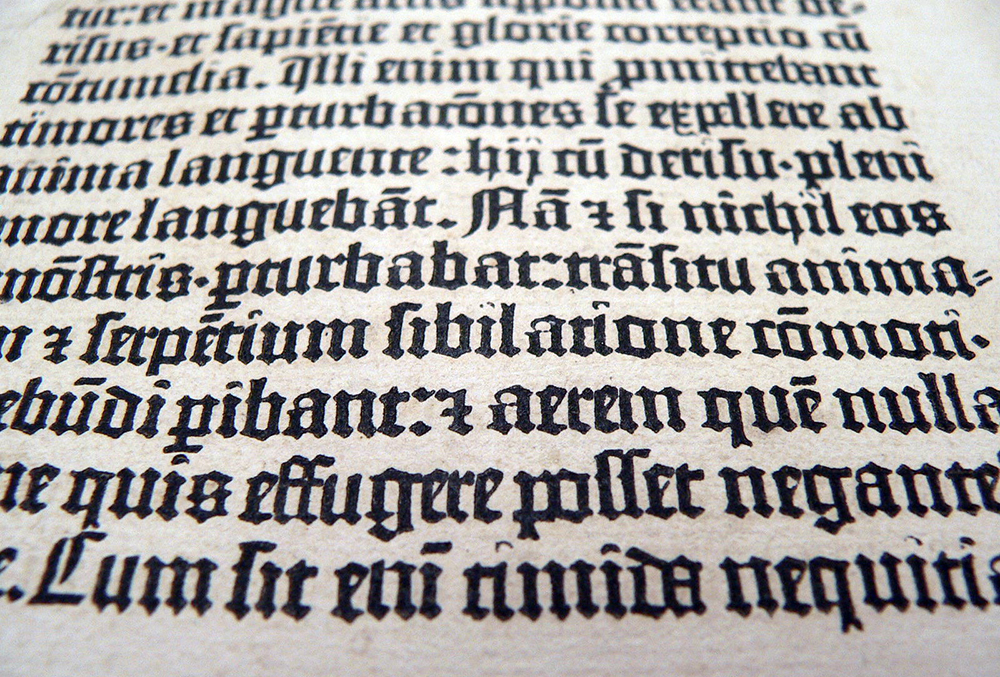 tur: et magice artis appoſiti erant de⸗
riſus· et ſapiētie et glorie correptio cū
cōtumelia. Illi enim qui ꝓmittebant
timores et ꝑturbacōnes ſe expellere ab
anima languente : hij cū deriſu· pleni
more languebāt. Nā ⁊ ſi nichil eos
mōſtris· ꝑturbabat: trāſitu anima⸗
⁊ ſerpētium ſibilatione cōmoti·
ebūdi ꝑibant: ⁊ aerem quē nulla
ne quis effugere poſſet negante
e. Cum ſit enī timida nequiti